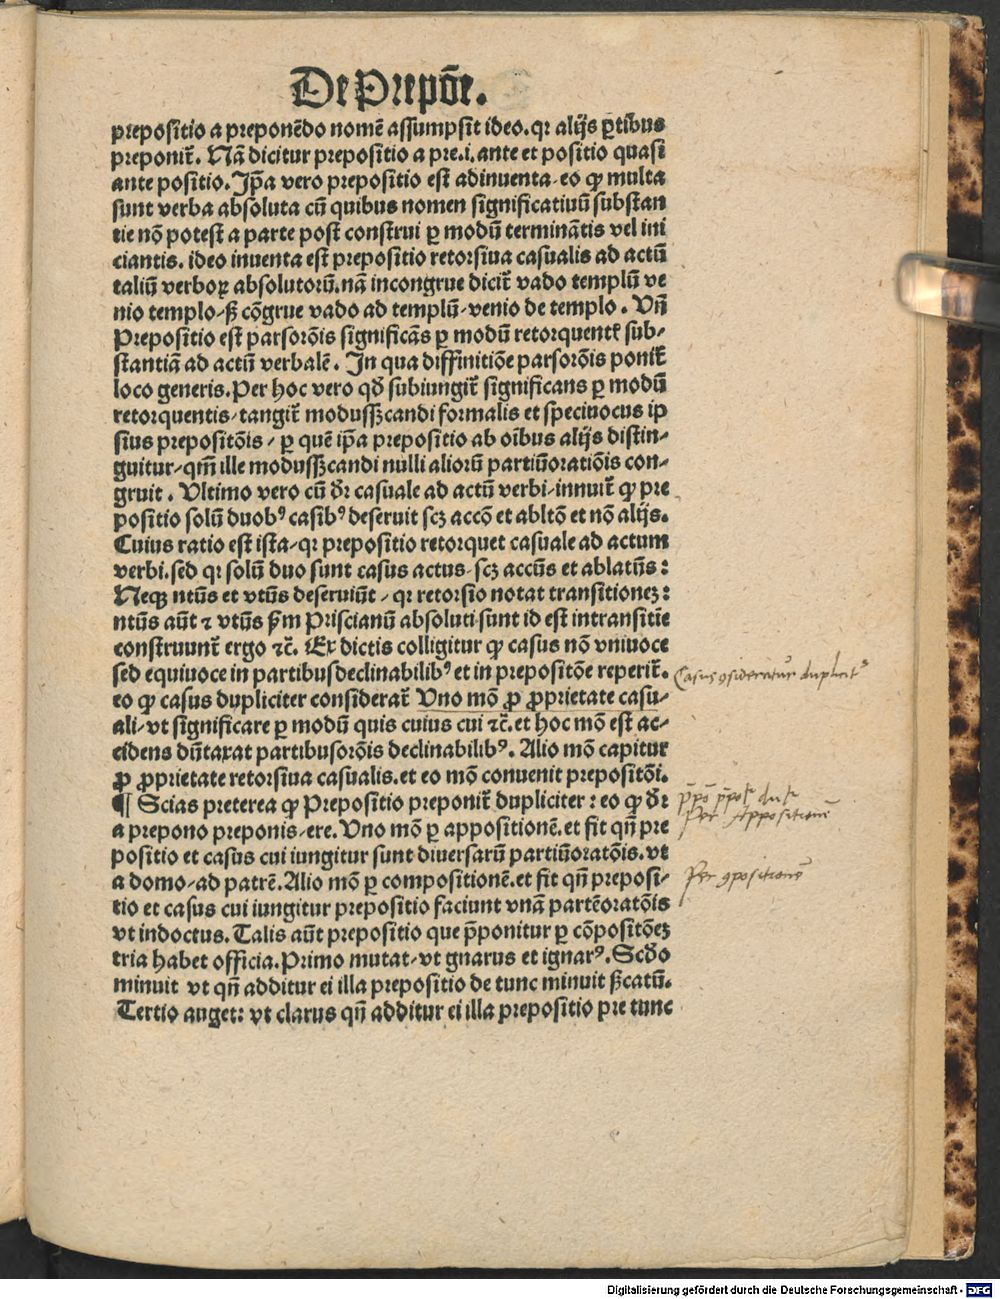 De Prepōe.
prepositio a preponēdo nomē assumpsit ideo. qꝛ alijs ꝑtibus
preponit̄. Nā dicitur prepositio a pre .i. ante et positio quasi
ante positio. Ip̄a vero prepositio est adinuenta, eo ꝙ multa
sunt verba absoluta cū quibus nomen significatiuū substan
tie nō potest a parte post construi ꝑ modū terminātis vel ini
ciantis. ideo inuenta est prepositio retorsiua casualis ad actū
taliū verboꝝ absolutorū. nā incongrue dicit̄ vado templū ve
nio templo, sꝫ cōgrue vado ad templū, venio de templo. Vn̄
Prepositio est parsorōis significās ꝑ modū retorquentꝭ sub-
stantiā ad actū verbalē. In qua diffinitiōe parsorōis ponit̄
loco generis. Per hoc vero qd̄ subiungit̄ significans ꝑ modū
retorquentis, tangit̄ modussꝫcandi formalis et speciuocus ip
sius prepositōis, ꝑ quē ip̄a prepositio ab oībus alijs distin-
guitur, qm̄ ille modussꝫcandi nulli aliorū partiūoratiōis con-
gruit. Vltimo vero cū dr̄ casuale ad actū verbi, innuit̄ ꝙ pre
positio solū duobꝰ casibꝰ deseruit scꝫ accō et abltō et nō alijs.
Cuius ratio est ista, qꝛ prepositio retorquet casuale ad actum
verbi. sed qꝛ solū duo sunt casus actus, scꝫ accūs et ablatūs:
Neqꝫ ntūs et vtūs deseruiūt, qꝛ retorsio notat transitionez:
ntūs aūt ⁊ vtūs ẜm Priscianū absoluti sunt id est intransitiē
construunt̄ ergo ⁊c̄. Ex dictis colligitur ꝙ casus nō vniuoce
sed equiuoce in partibusdeclinabilibꝰ et in prepositōe reperit̄.
eo ꝙ casus dupliciter considerat̄ Vno mō ꝓ ꝓprietate casu-
ali, vt significare ꝑ modū quis cuius cui ⁊c̄. et hoc mō est ac-
cidens dūtaxat partibusorōis declinabilibꝰ. Alio mō capitur
ꝓ ꝓprietate retorsiua casualis. et eo mō conuenit prepositōi.
¶ Scias preterea ꝙ Prepositio preponit̄ dupliciter: eo ꝙ dr̄
a prepono preponis, ere. Vno mō ꝑ appositionē. et fit qn̄ pre
positio et casus cui iungitur sunt diuersarū partiūoratōis. vt
a domo, ad patrē. Alio mō ꝑ compositionē. et fit qn̄ preposi-
tio et casus cui iungitur prepositio faciunt vnā partēoratōis
vt indoctus. Talis aūt prepositio que p̄ponitur ꝑ cōpositōez
tria habet officia. Primo mutat, vt gnarus et ignarꝰ. Scd̄o
minuit vt qn̄ additur ei illa prepositio de tunc minuit sꝫcatū.
Tertio auget: vt clarus qn̄ additur ei illa prepositio pre tunc
Casus ꝯsideratur duplicitꝰ
Per Appositionē
Per ꝯpositionē
Digitalisierung gefördert durch die Deutsche Forschungsgemeinschaft - DFG